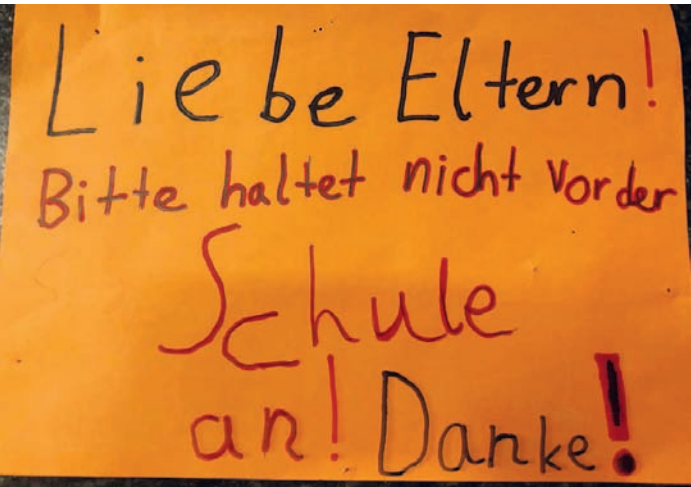 Liebe Eltern!
Bitte haltet nicht vor der
Schule
an! Danke!